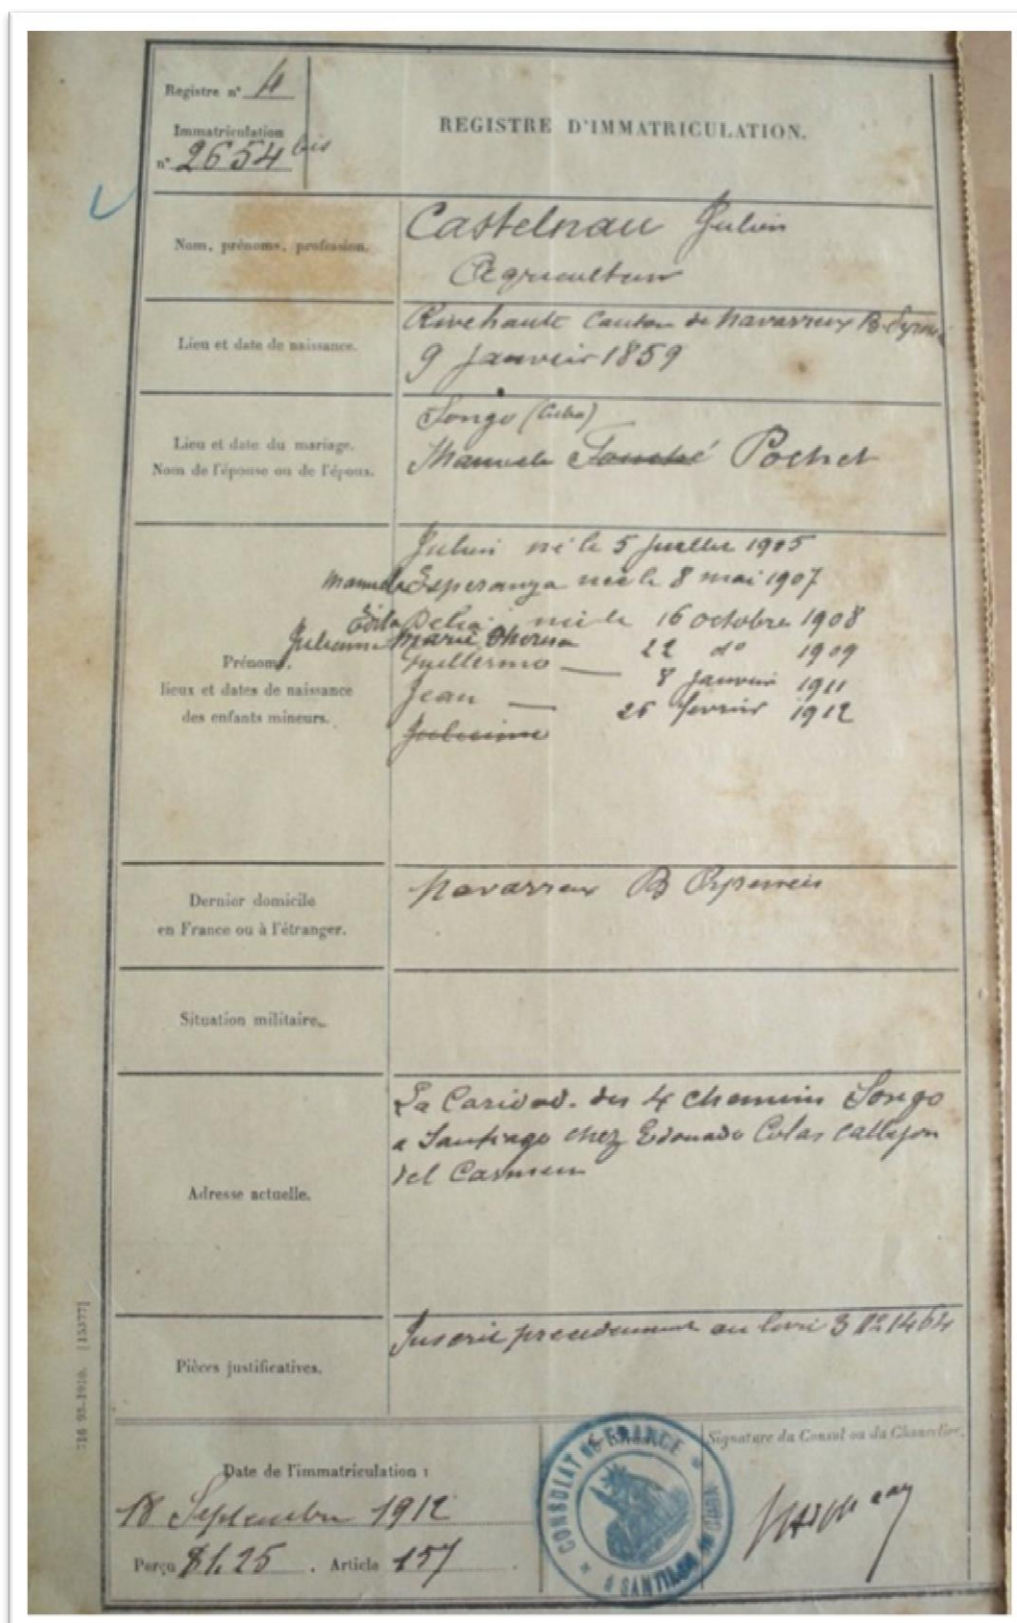 Registre n° 4
Immatriculation
n° 2654 bis
REGISTRE D'IMMATRICULATION.
Nom, prénoms, profession.
Castelnau Julien
Agriculteur
Lieu et date de naissance.
Rivehaute Canton de Navarreux B. Pyrn
9 Janvier 1859
Lieu et date du mariage.
Nom de l'épouse ou de l'époux.
Songo (Cuba)
Manuela Fouché Pochet
Prénoms,
lieux et dates de naissance
des enfants mineurs.
Julien né le 5 Juillet 1905
Manuela Esperanza née le 8 mai 1907
Edila Delia née le 16 octobre 1908
Julienne Marie Theresa 22 d° 1909
Guillermo — 8 Janvier 1911
Jean — 25 fevrier 1912
Julienne
Dernier domicile
en France ou à l'étranger.
Navarreux B Pyrennées
Situation militaire.
Adresse actuelle.
La Caridad. des 4 chemins Songo
a Santiago chez Edouado Colas callejon
del Carmen
Pièces justificatives.
Inscrit precedemment au livre 3 n° 1464
716 95-1910. [15377]
Date de l'immatriculation :
18 Septembre 1912
Perçu $1.25. Article 157
CONSULAT DE FRANCE
A SANTIAGO DE CUBA
Signature du Consul ou du Chancelier.